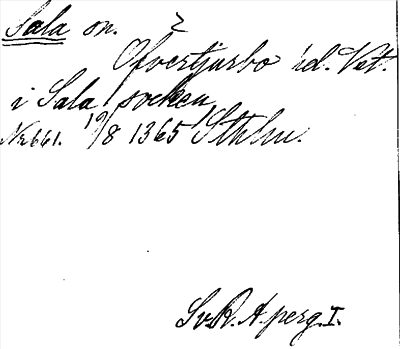 Sala sn. 2
Öfvertjurbo id. Vet.
i Sala socken
No 661. 19/8 1365 Sthlm.
Sv. R. A. perg. I.